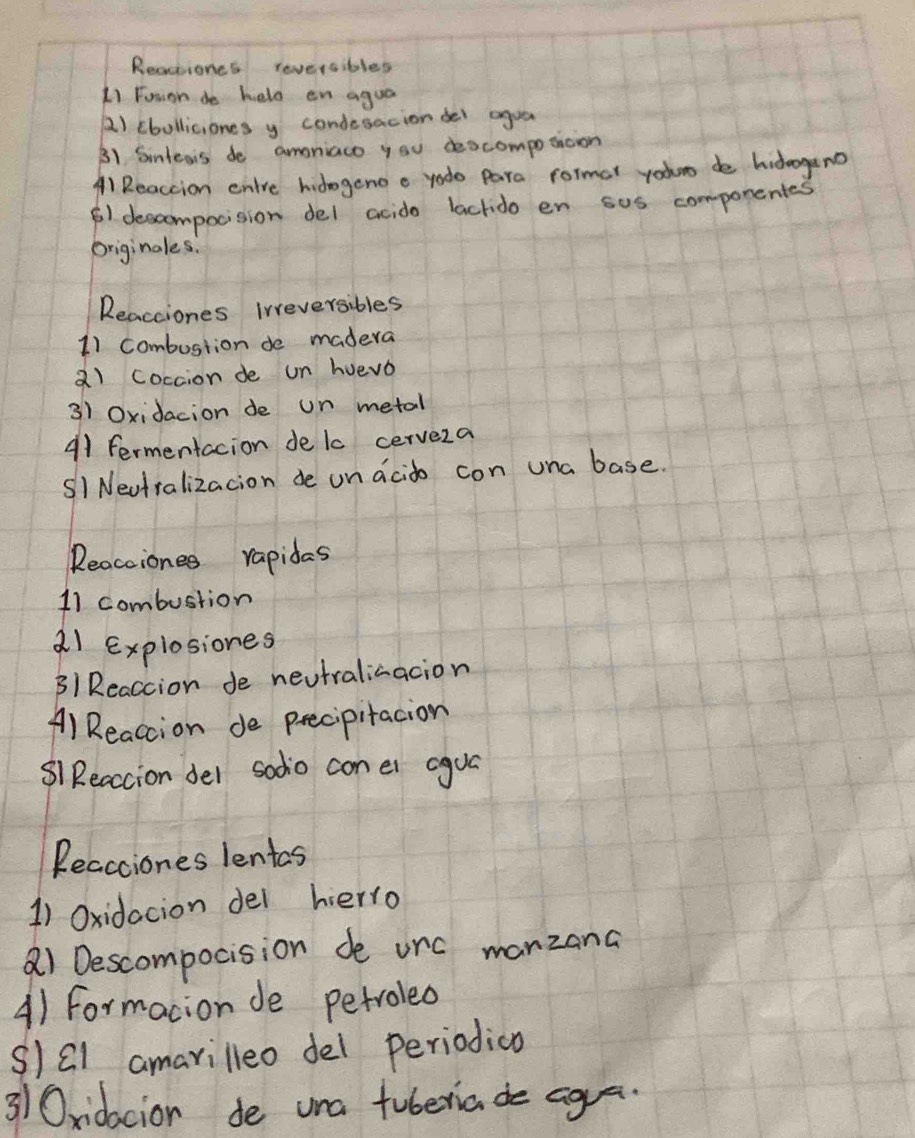 Reacciones reversibles
1) Fusion de hielo en agua
2) Ebulliciones y condesacion del agua
3) Sintesis de amoniaco y su descomposicion
4) Reaccion entre hidogeno e yodo para formar yoduro de hidrogeno
5) descompocision del acido lactido en sus componentes
originales.
Reacciones Irreversibles
1) combustion de madera
2) coccion de un huevo
3) Oxidacion de un metal
4) fermentacion de la cerveza
5) Neutralizacion de un ácido con una base.
Reacciones rapidas
1) combustion
2) Explosiones
3) Reaccion de neutralizacion
4) Reaccion de precipitacion
5) Reaccion del sodio con el agua
Reaccciones lentas
1) Oxidacion del hierro
2) Descompocision de una manzana
4) Formacion de petroleo
5) El amarilleo del periodico
3) Oxidacion de una tuberia de agua.